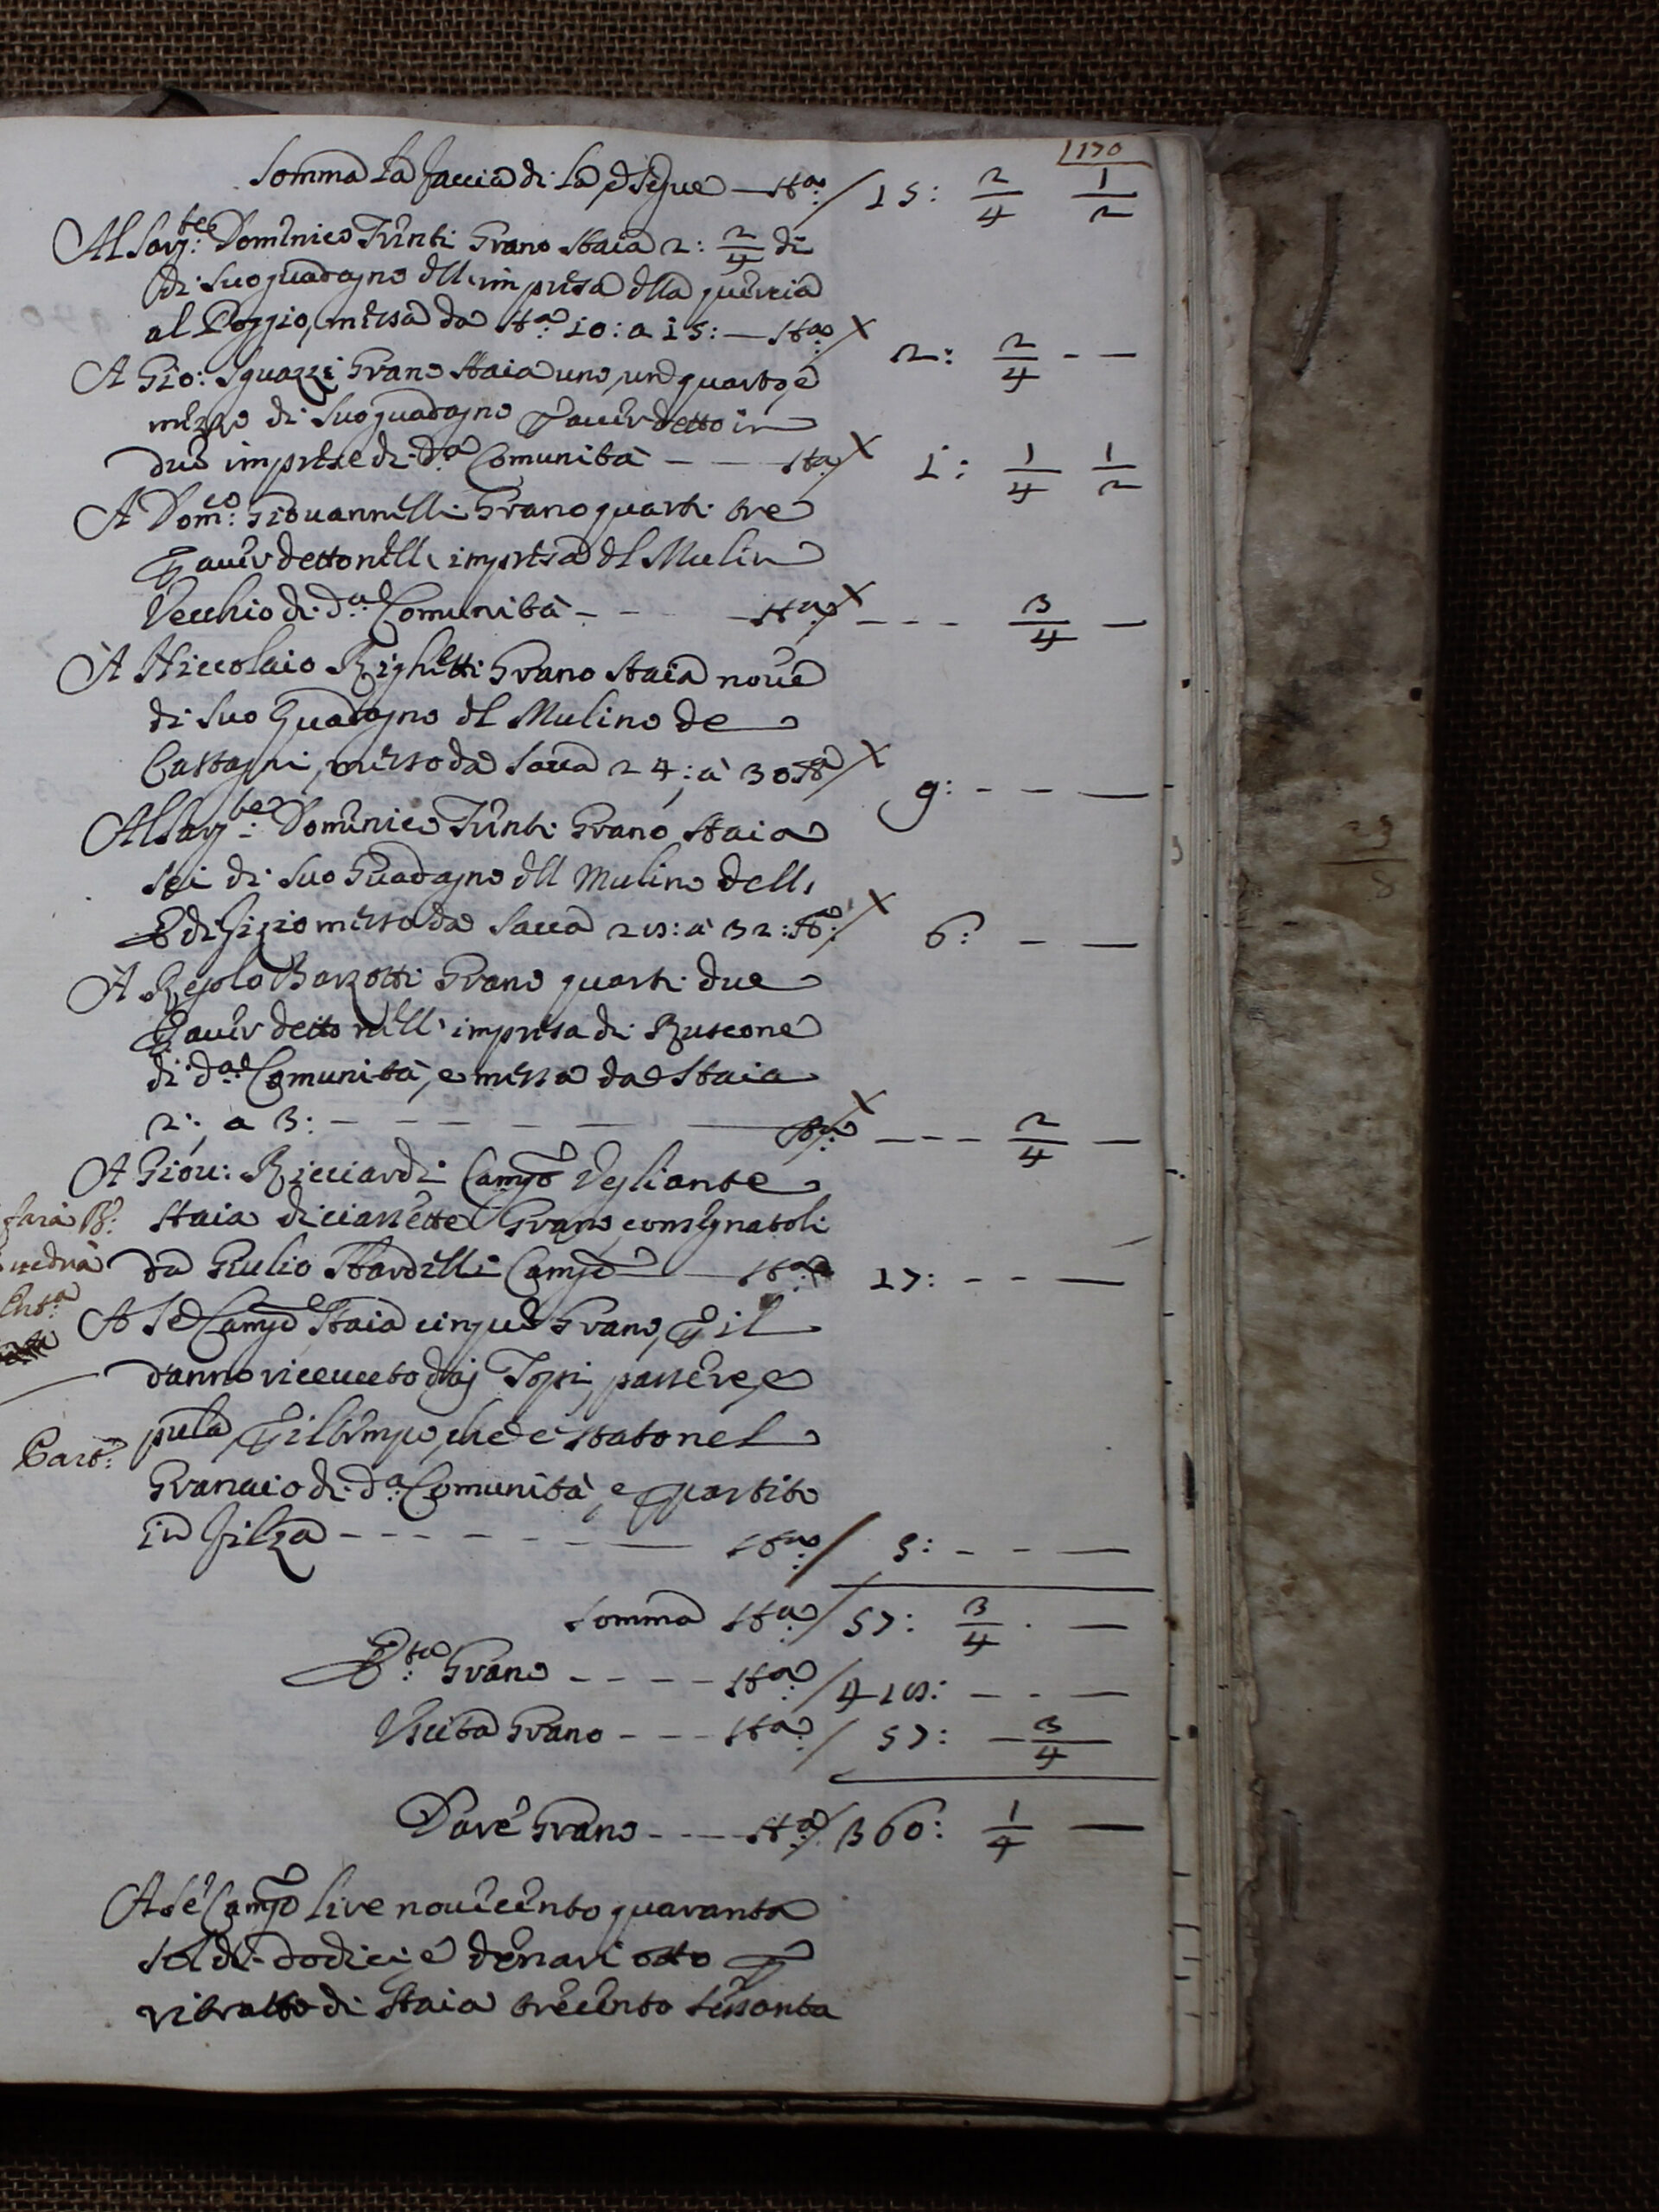 170
Somma la faccia di la e segue — Sta: / 15: 2/4 1/2
Al Sarg:te Dominico Trinti Grano Staia 2: 2/4 di
di suo guadagno dll impresa dlla quercia
al Poggio, messa da Sta: 10: a 15: — Sta: X 2: 2/4 - —
A Gio: Sguazzi Grano Staia uno, un quarto, e
mezzo di suo guadagno p auer detto in
due imprese di da Comunità — — Sta: X 1: 1/4 1/2
A Dom:co Giouannelli Grano quarti tre
p auer detto nell impresa dl Mulin
Vecchio di da: Comunità - - Sta: X - - - 3/4 —
A Niccolaio Righetti Grano Staia noue
di suo Guadagno dl Mulino de
Castagni, messo da Sacca 24: à 30 Sta X 9: - - —
Al Sarg:te Dominico Trinti Grano Staia
sei di suo Guadagno dll Mulino dell
Edifizio messo da Sacca 28: à 32: Sta: X 6: — —
A Regolo Barzotti Grano quarti due
p auer detto nell impresa di Ruscone
di da: Comunità, e messa da Staia
2: a 3: - - - - - — Sta: X - - - 2/4 —
A Giou: Ricciardi Camgo Vegliante
Staia diciassette Grano consegnatoli
da Giulio Nardelli Camgo — Sta: 17: - - —
A Se Camgo Staia cinque Grano, p il
danno riceuuto daj Topi, passere, e
pula p il tempo, che è stato nel
Granaio di da: Comunità, e p partito
in filza - - - - - — Sta: / 5: - - —
sarà
uedrà
Ent:a
Part:
Somma Sta: / 57: 3/4 · —
E:ta Grano - - - - Sta: / 418: - - —
Uscita Grano - - - Sta: / 57: — 3/4
Dare Grano - - — Sta: / 360: 1/4 —
A Se Camgo lire nouecento quaranta
soldi dodici, e denari otto p
ritratto di Staia trecento sessanta